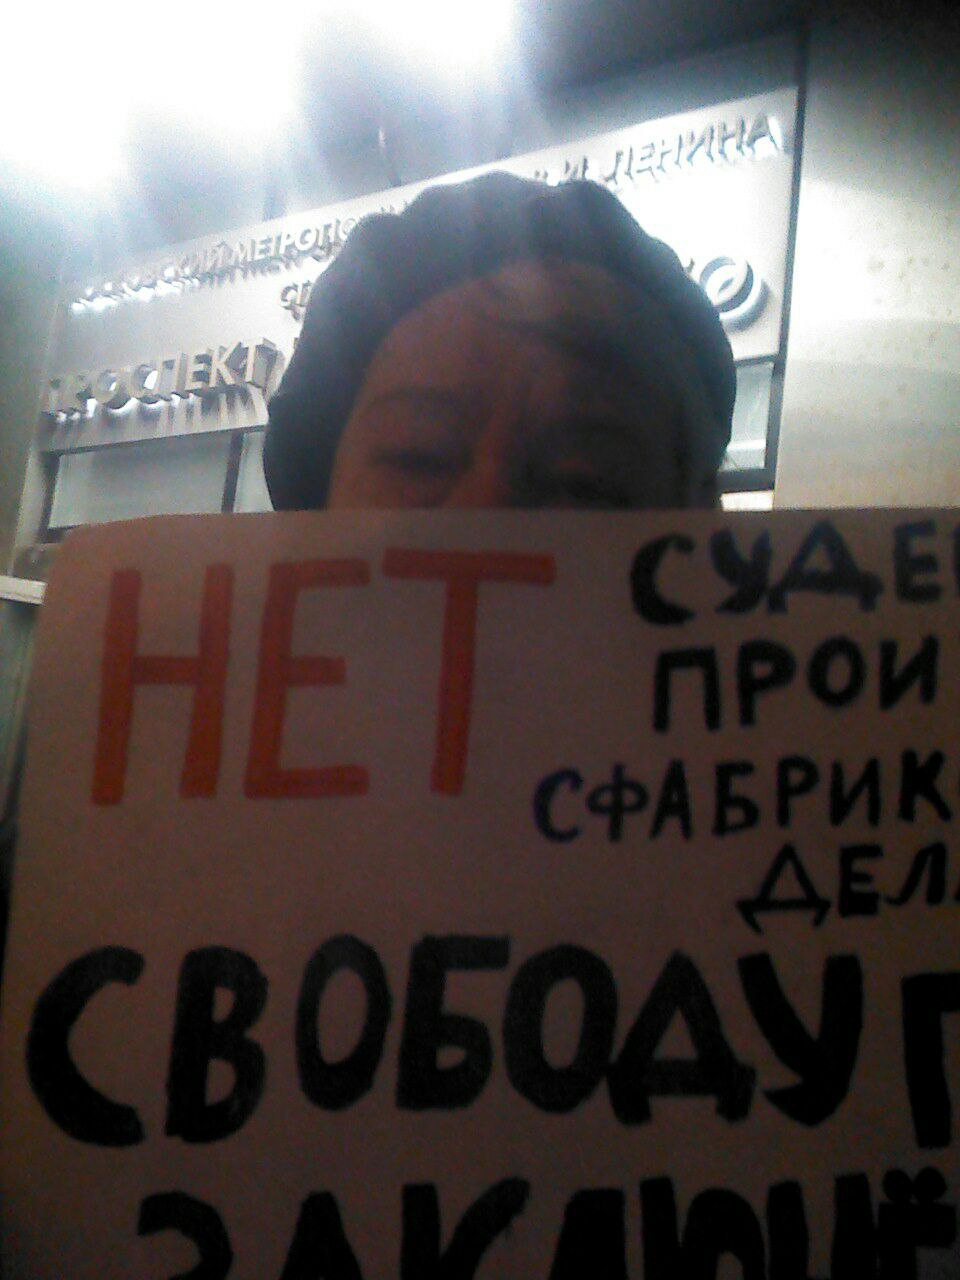 МОСКОВСКИЙ МЕТРОПО И. ЛЕНИНА
ПРОСПЕКТ
НЕТ СУДЕ
ПРОИ
СФАБРИК
ДЕЛ
СВОБОДУ П
ЗАКЛЮЧЁ